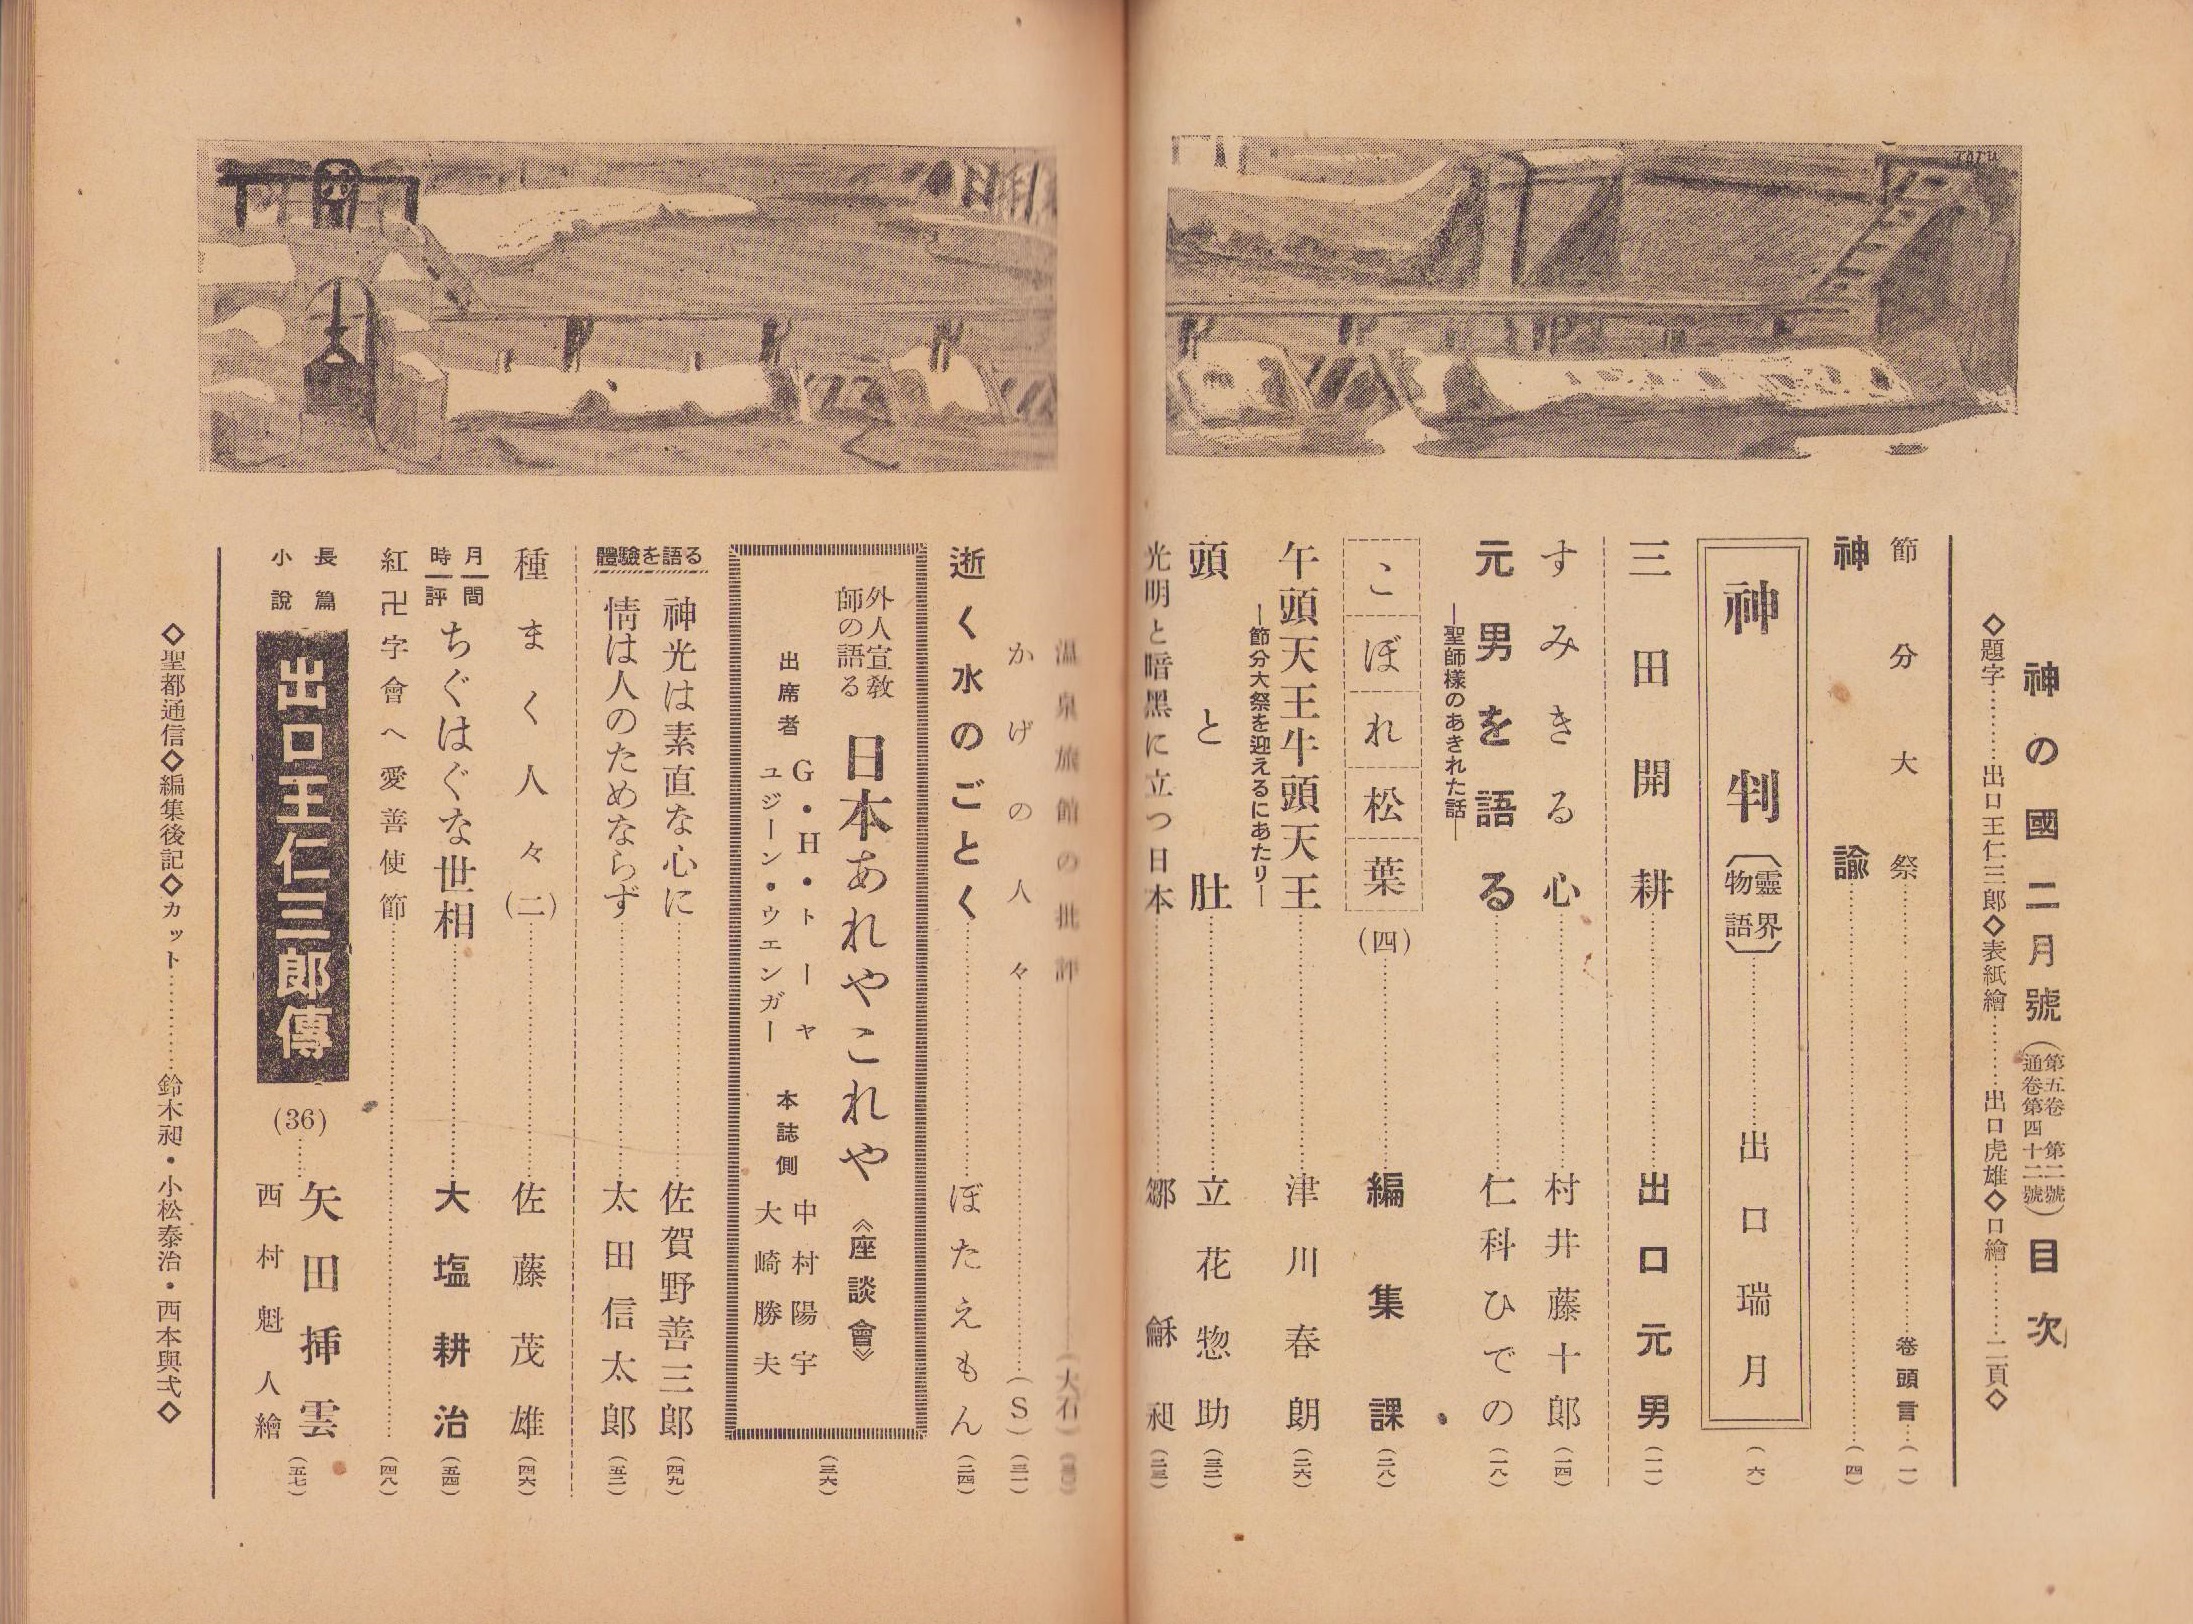 神の國 二月號(第五卷 第二號 通卷第四十二號)目次
◇題字…………出口王仁三郎◇表紙繪…………出口虎雄◇口繪…………二頁◇
節分大祭…………卷頭言…(一)
神諭…………(四)
神判〔靈界物語〕…………出口瑞月(六)
三田開耕…………出口元男(一一)
すみきる心…………村井藤十郎(一四)
元男を語る…………仁科ひでの(一八)
―聖師樣のあきれた話―
こぼれ松葉(四)…………編集課(二八)
午頭天王牛頭天王…………津川春朗(二六)
―節分大祭を迎えるにあたり―
頭と肚…………立花惣助(三二)
光明と暗黑に立つ日本…………鄒龢昶
溫泉旅館の批評…………(大石)
かげの人々…………(S)(三一)
逝く水のごとく…………ぼたえもん(二四)
外人宣教師の語る 日本あれやこれや《座談會》(三六)
出席者 G・H・トーヤ
ユジーン・ウエンガー
本誌側 中村陽宇
大崎勝夫
體驗を語る
神光は素直な心に…………佐賀野善三郎(四九)
情は人のためならず…………太田信太郎(五二)
種まく人々(二)…………佐藤茂雄(四六)
月間時評 ちぐはぐな世相…………大塩耕治(五四)
紅卍字會へ愛善使節…………(四八)
長篇小說 出口王仁三郎傳(36)……矢田挿雲(五七)
西村魁人繪
◇聖都通信◇編集後記◇カット…………鈴木昶・小松泰治・西本與弍◇
TORU